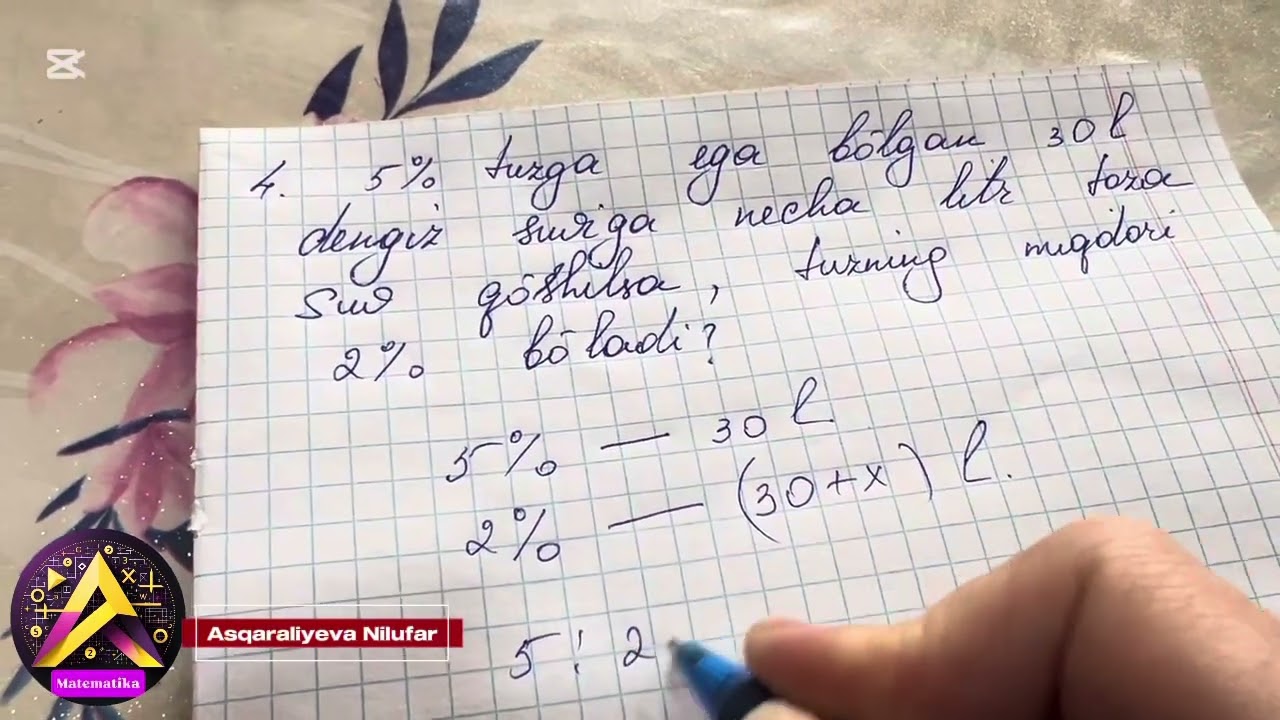 4. 5% tuzga ega bõlgan 30 l
dengiz suviga necha litr toza
suv qõshilsa, tuzning miqdori
2% bõladi?
5% — 30 l
2% — (30+x) l.
5 : 2
Asqaraliyeva Nilufar
Matematika